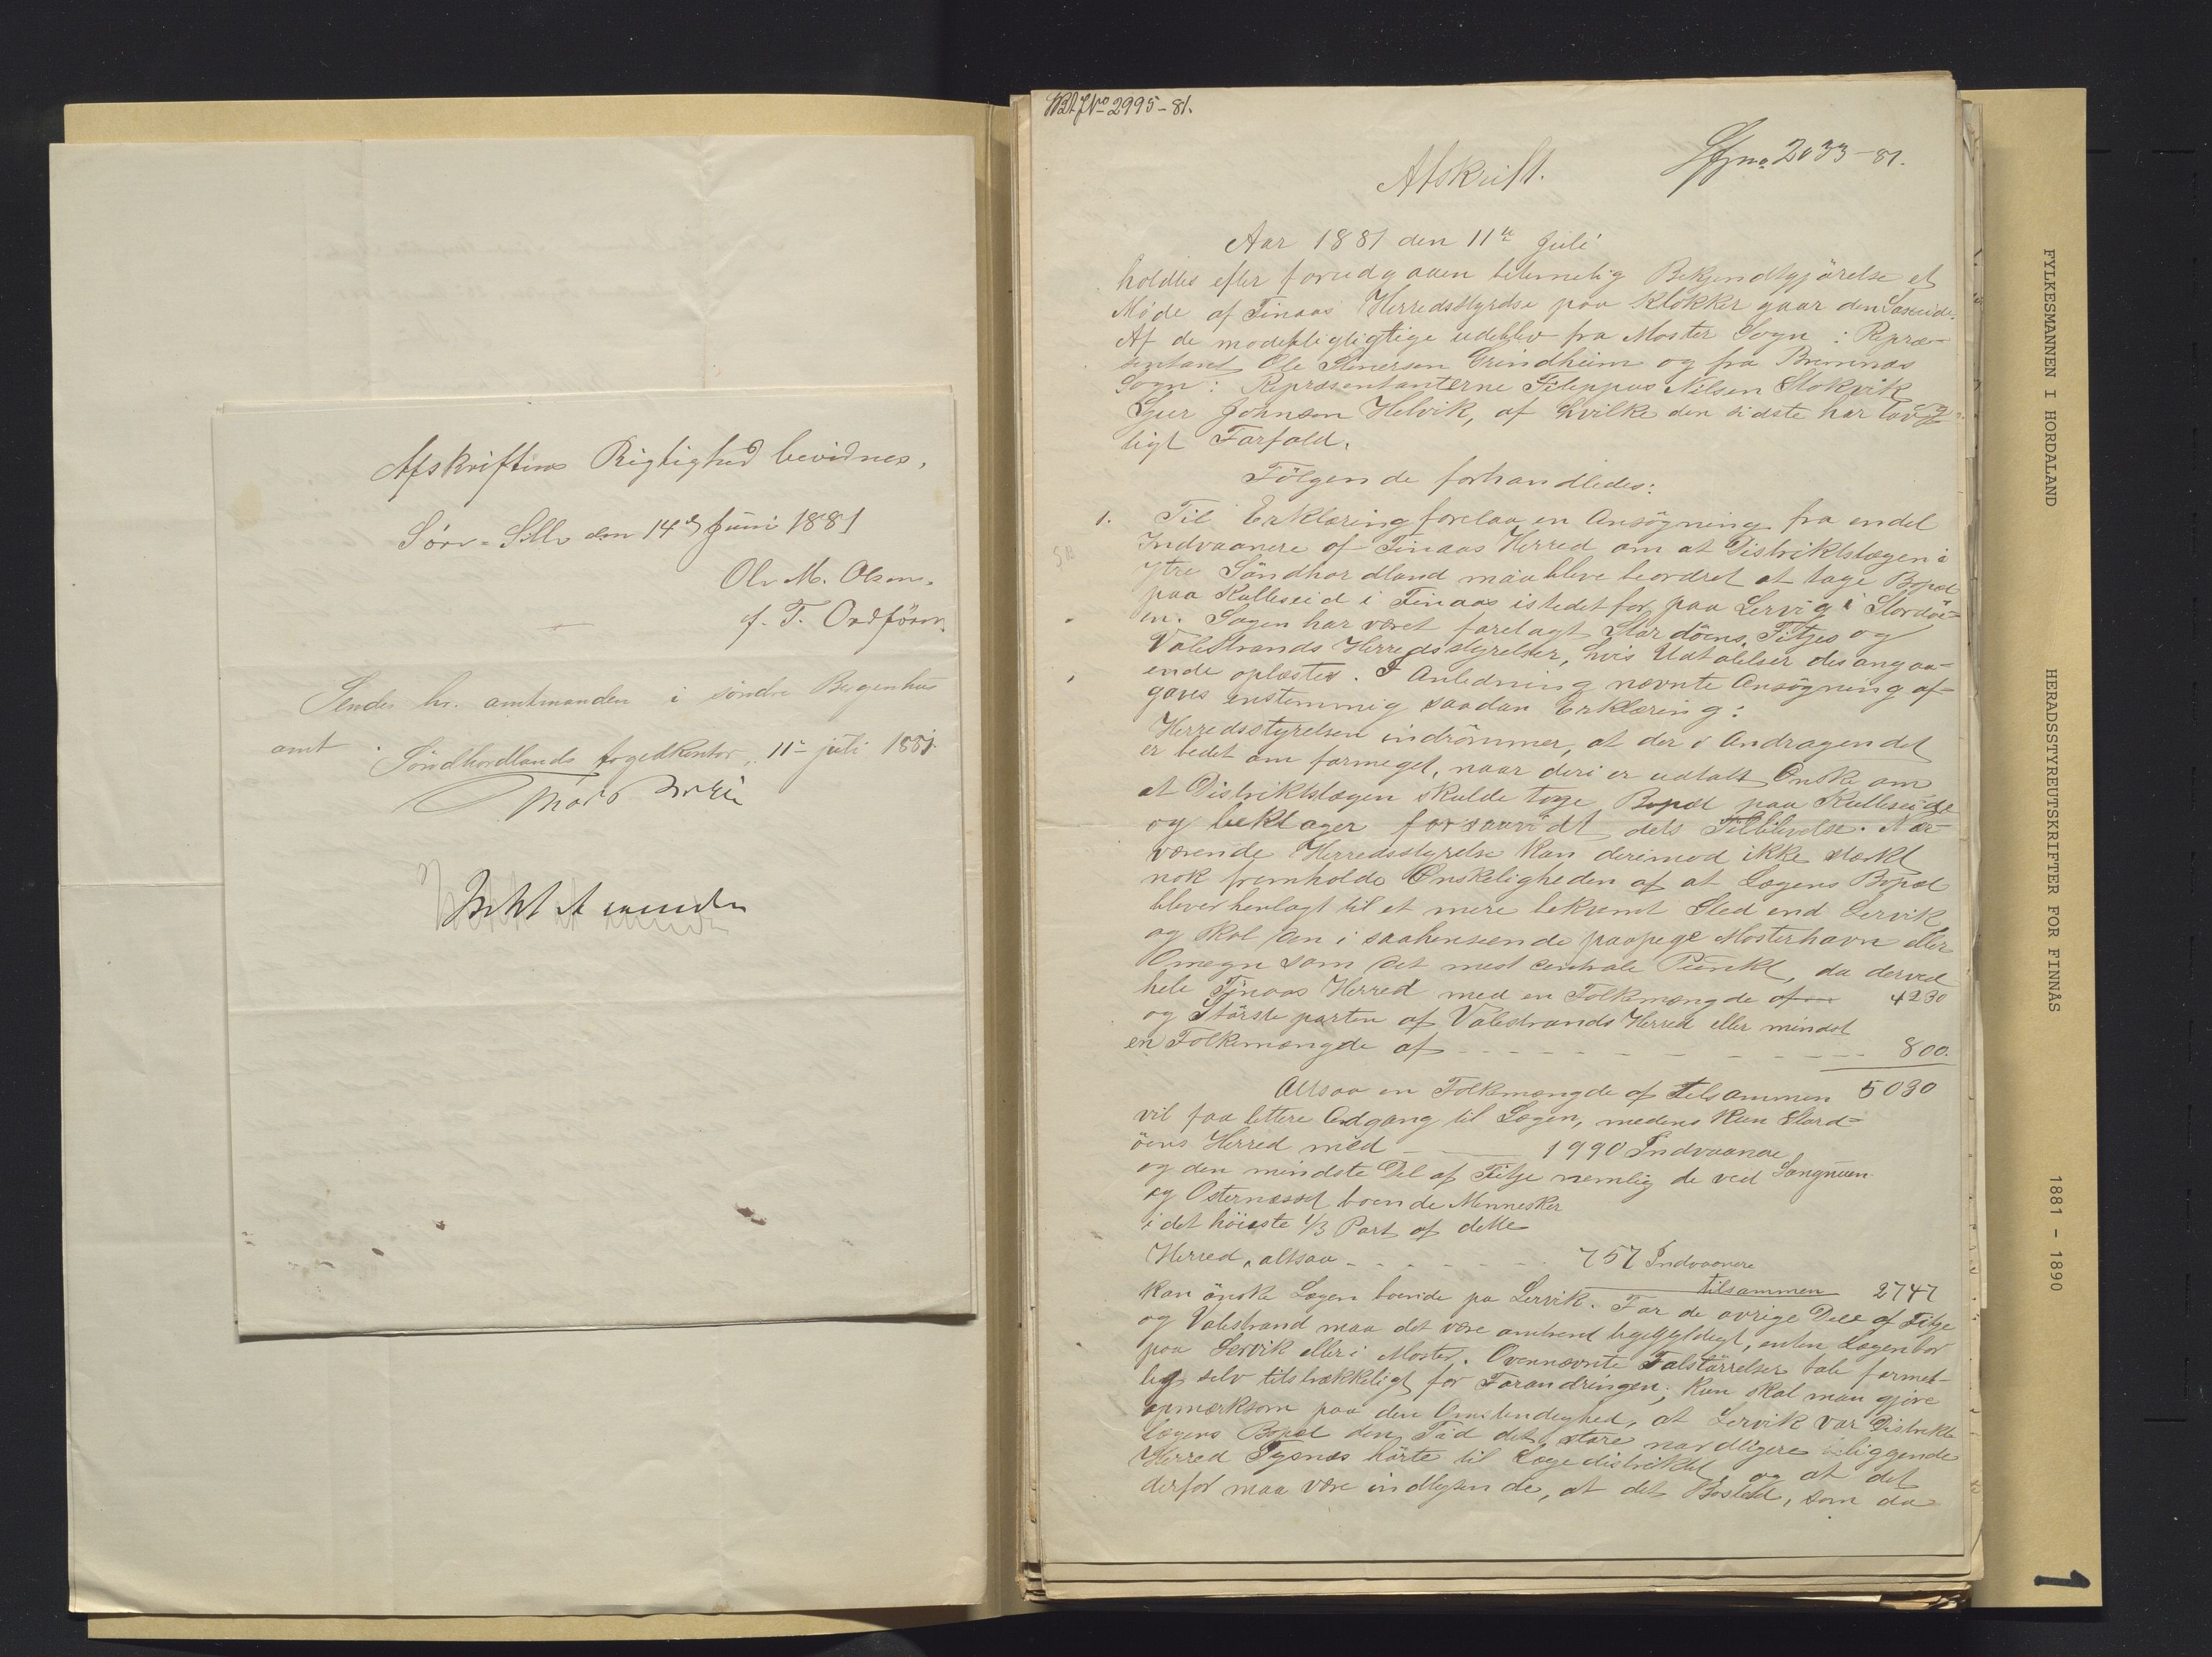 Afskriftens Rigtighed bevidnes.
Sörv-Sille den 14de Juni 1881
Ole M. Olsen.
f. T. Ordförer.
Sendes hr. amtmanden i söndre Bergenhus
amt. Söndhordlands fogedkontor, 11te juli 1881.
No 2995-81.
Sfjno 2033-81.
Afskrift.
Aar 1881 den 11te Juli
holdtes efter forudgaaen betimelig Bekjendtgjörelse et
Möde af Finaas Herredsstyrelse paa Klokkergaarden Laxeide.
Af de modepligtigtige udeblev fra Moster Sogn: Repræ-
sentant Ole Stenersen Grindheim og fra Bremnæs
Sogn: Repræsentanterne Filippus Nilsen Stokvik
Sjur Johnsen Helvik, af hvilke den sidste har lov-
ligt Forfald.
Fölgende forhandledes:
1. Til Erklæring forelaa en Ansögning fra endel
Indvaanere af Finaas Herred om at Distriktslægen i
Ytre Söndhordland maa blive beordret at tage Bopæl
paa Kulleseid i Finaas istedet for paa Lervig i Stordö-
en. Sagen har været forelagt Stordöens, Fitjes og
Valestrands Herredsstyrelser, hvis Udtalelser desangaa-
ende oplæstes. I Anledning nævnte Ansögning af-
gaves enstemmig saadan Erklæring:
Herredsstyrelsen indrömmer, at der i Andragendet
er bedet om formeget, naar deri er udtalt Önske om
at Distriktslægen skulde tage Bopæl paa Kulleseide
og beklager forsaavidt dets Tilblivelse. Nær-
værende Herredsstyrelse kan derimod ikke stærkt
nok fremholde Önskeligheden af at Lægens Bopæl
bliver henlagt til et mere bekvemt Sted end Lervik
og skal den i saahenseende paapege Mosterhavn eller
Omegn som det mest centrale Punkt, da derved
hele Finaas Herred med en Folkemængde af 4230
og Störsteparten af Valestrands Herred eller mindst
en Folkemængde af - - - - - - - - - 800.
Altsaa en Folkemængde af tilsammen 5030
vil faa lettere Adgang til Lægen, medens kun Stord-
öens Herred med - - - 1990 Indvaanere
og den mindste Del af Fitje nemlig de ved Langnuen
og Osternæsset boende Mennesker
i det höieste 1/3 Part af dette
Herred, altsaa - - - - - - - 757 Indvaanere
tilsammen 2747
kan önske Lægen boende pa Lervik. For de ovrige Dele af Fitje
og Valestrand maa det være omtrent ligegyldigt, enten Lægen bor
paa Lervik eller i Moster. Ovennævnte Talstörrelser tale forment-
lig selv tilstrækkeligt for Forandringen; kun skal man gjöre
opmærksom paa den Omstendighed, at Lervik var Distrikts-
lægens Bopæl den Tid det store nordligere liggende
Herred Tysnæs hörte til Lægedistriktet og at det
derfor maa være indlysende, at det Bosted, som da
FYLKESMANNEN I HORDALAND
HERADSSTYREUTSKRIFTER FOR FINNÅS
1881 - 1890
1